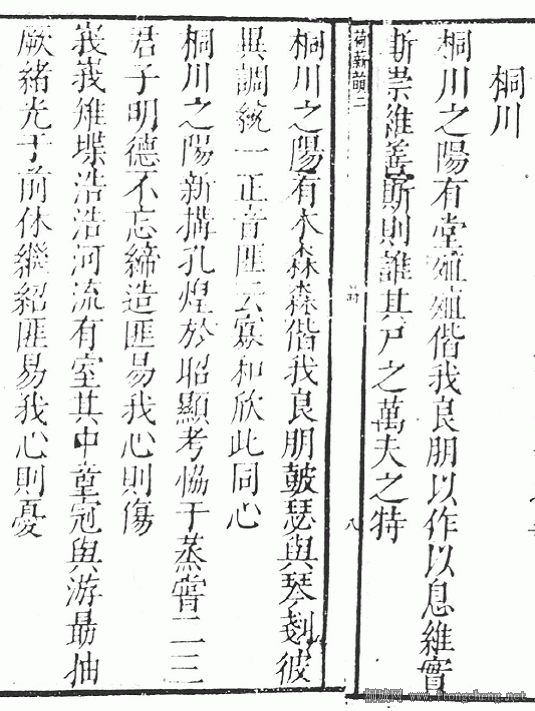 桐川
桐川之陽有堂殖殖偕我良朋以作以息維實
斯崇維善斯則誰其尸之萬夫之特
荷薪萌二
詩
八
桐川之陽有木森森偕我良朋皷瑟與琴剗彼
異調統一正音匪云寡和欣此同心
桐川之陽新搆孔煌於昭顯考恊于蒸嘗二三
君子明德不忘締造匪易我心則傷
峩峩雉堞浩浩河流有室其中童冠與游朂抽
厥緒光于前休繼紹匪易我心則憂
桐城网 www.itongcheng.net